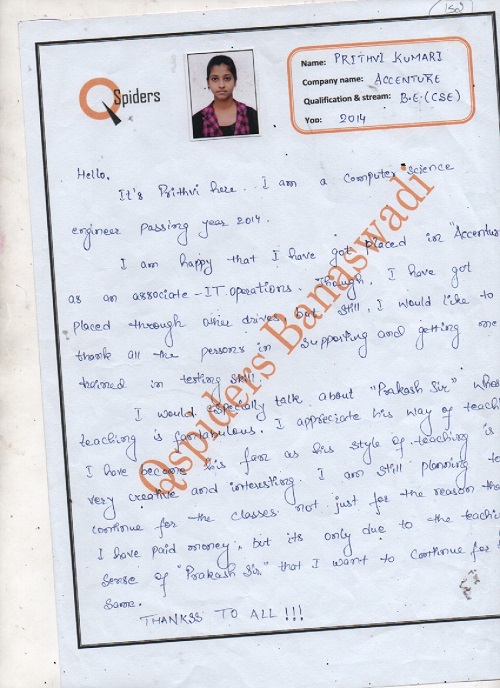 150
QSpiders
Name: PRITHVI KUMARI
Company name: ACCENTURE
Qualification & stream: B.E.(CSE)
Yop: 2014
Hello,
It's Prithvi here. I am a computer science
engineer passing year 2014.
I am happy that I have got placed in "Accenture
as an associate - IT operations. Though, I have got
placed through other drives, but still, I would like to
thank all the persons in supporting and getting me
trained in testing skill.
I would especially talk about "Prakash Sir" whose
teaching is fantabulous. I appreciate his way of teachi
I have become his fan as his style of teaching is
very creative and interesting. I am still planning to
continue for the classes not just for the reason tha
I have paid money, but its only due to the teachi
sense of "Prakash Sir" that I want to continue for
same.
THANKSS TO ALL !!!
Qspiders Banaswadi